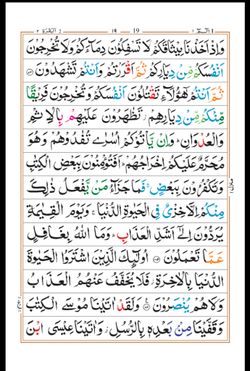 الٓمّٓ ١ ١٩ البقرة ٢
وَاِذْ اَخَذْنَا مِيْثَاقَكُمْ لَا تَسْفِكُوْنَ دِمَآءَكُمْ وَلَا تُخْرِجُوْنَ
اَنْفُسَكُمْ مِّنْ دِيَارِكُمْ ثُمَّ اَقْرَرْتُمْ وَاَنْتُمْ تَشْهَدُوْنَ
ثُمَّ اَنْتُمْ هٰٓؤُلَآءِ تَقْتُلُوْنَ اَنْفُسَكُمْ وَتُخْرِجُوْنَ فَرِيْقًا
مِّنْكُمْ مِّنْ دِيَارِهِمْ تَظٰهَرُوْنَ عَلَيْهِمْ بِالْاِثْمِ
وَالْعُدْوَانِ وَاِنْ يَّاْتُوْكُمْ اُسٰرٰى تُفٰدُوْهُمْ وَهُوَ
مُحَرَّمٌ عَلَيْكُمْ اِخْرَاجُهُمْ اَفَتُؤْمِنُوْنَ بِبَعْضِ الْكِتٰبِ
وَتَكْفُرُوْنَ بِبَعْضٍ فَمَا جَزَآءُ مَنْ يَّفْعَلُ ذٰلِكَ
مِنْكُمْ اِلَّا خِزْيٌ فِى الْحَيٰوةِ الدُّنْيَا وَيَوْمَ الْقِيٰمَةِ
يُرَدُّوْنَ اِلٰٓى اَشَدِّ الْعَذَابِ وَمَا اللّٰهُ بِغَافِلٍ
عَمَّا تَعْمَلُوْنَ اُولٰٓئِكَ الَّذِيْنَ اشْتَرَوُا الْحَيٰوةَ
الدُّنْيَا بِالْاٰخِرَةِ فَلَا يُخَفَّفُ عَنْهُمُ الْعَذَابُ
وَلَا هُمْ يُنْصَرُوْنَ وَلَقَدْ اٰتَيْنَا مُوْسَى الْكِتٰبَ
وَقَفَّيْنَا مِنْۢ بَعْدِهٖ بِالرُّسُلِ وَاٰتَيْنَا عِيْسَى ابْنَ